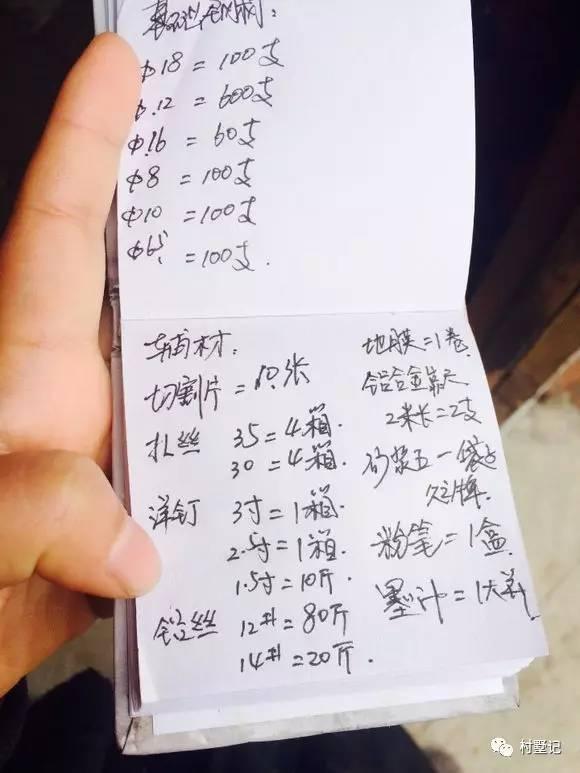 基础钢材:
φ18 = 100支
φ12 = 600支
φ16 = 60支
φ8 = 100支
φ10 = 100支
φ6.5 = 100支.
辅材:
切割片 = 10张
扎丝 35 = 4箱.
30 = 4箱.
洋钉 3寸 = 1箱.
2.5寸 = 1箱.
1.5寸 = 10斤.
铅丝 12# = 80斤
14# = 20斤.
地膜 = 1卷.
铝合金靠尺
2米长 = 2支
砂浆王一袋
牌.
粉笔 = 1盒
墨汁 = 1大瓶
村墅记